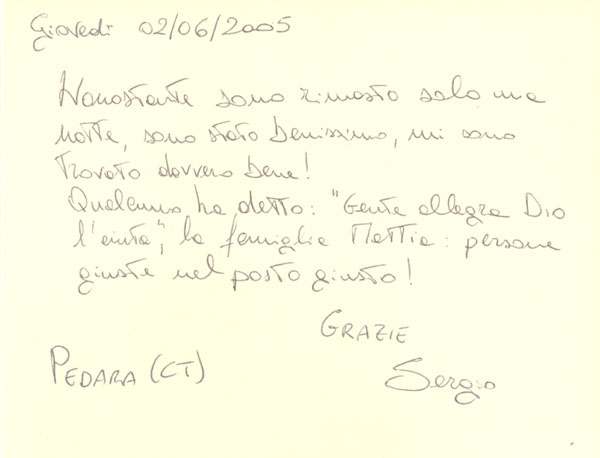 Giovedì 02/06/2005
Nonostante sono rimasto solo una
notte, sono stato benissimo, mi sono
trovato davvero bene!
Qualcuno ha detto: "Gente allegra Dio
l'aiuta", la famiglia Mattia: persone
giuste nel posto giusto!
GRAZIE
PEDARA (CT)
Sergio